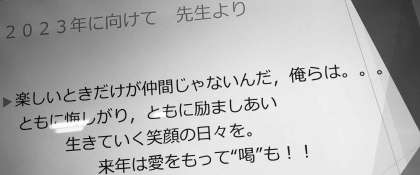 2023年に向けて 先生より
▶楽しいときだけが仲間じゃないんだ，俺らは。。。
ともに悔しがり，ともに励ましあい
生きていく笑顔の日々を。
来年は愛をもって“喝”も！！